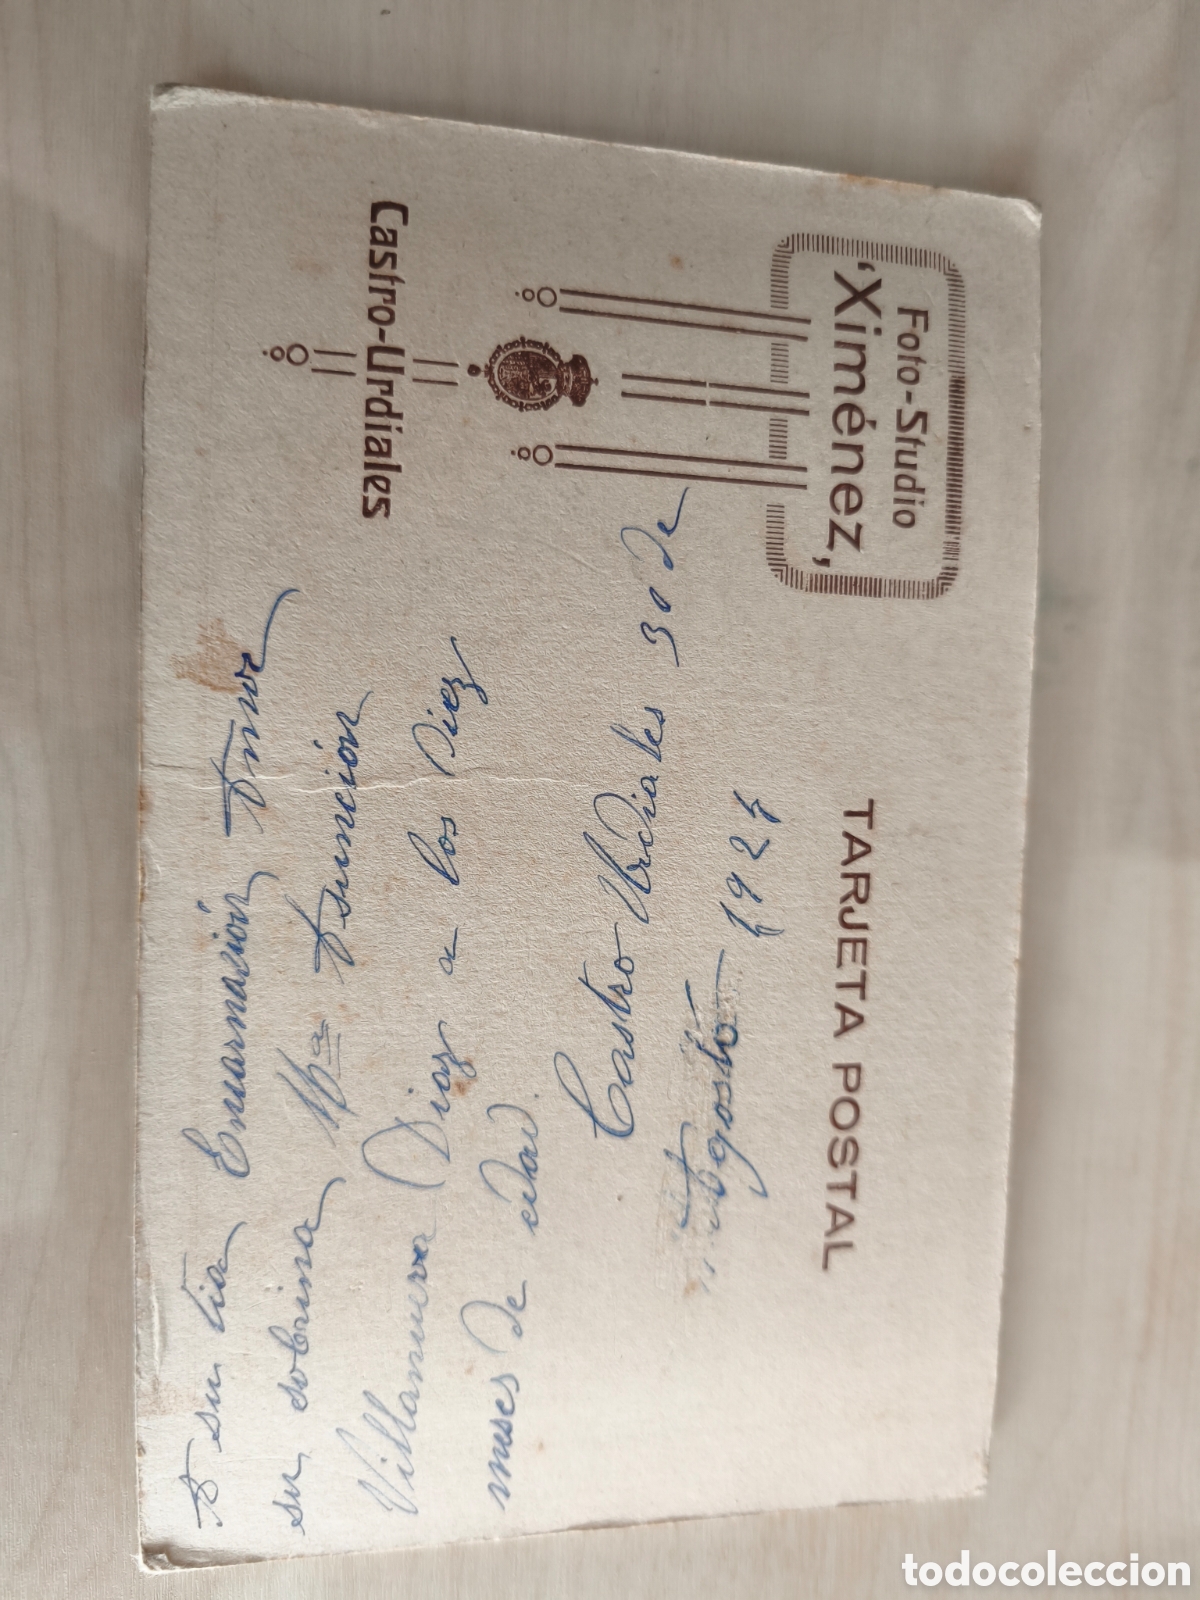 Foto-Studio
'Ximénez,
Castro-Urdiales
TARJETA POSTAL
A su tia Encarnación
su sobrina Mª Asuncion
Villanueva Diaz a los Diez
meses de edad.
Castro Urdiales 30 de
Agosto 1924
todocoleccion